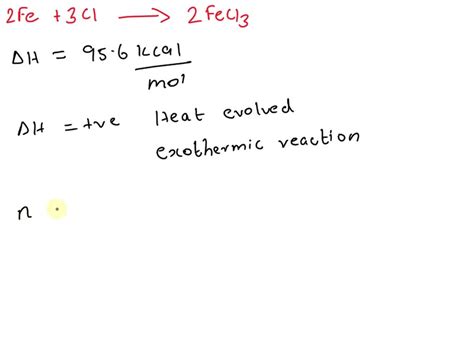 2Fe + 3Cl → 2FeCl3
ΔH = 95.6 kcal/mol
ΔH = +ve Heat evolved
exothermic reaction
n